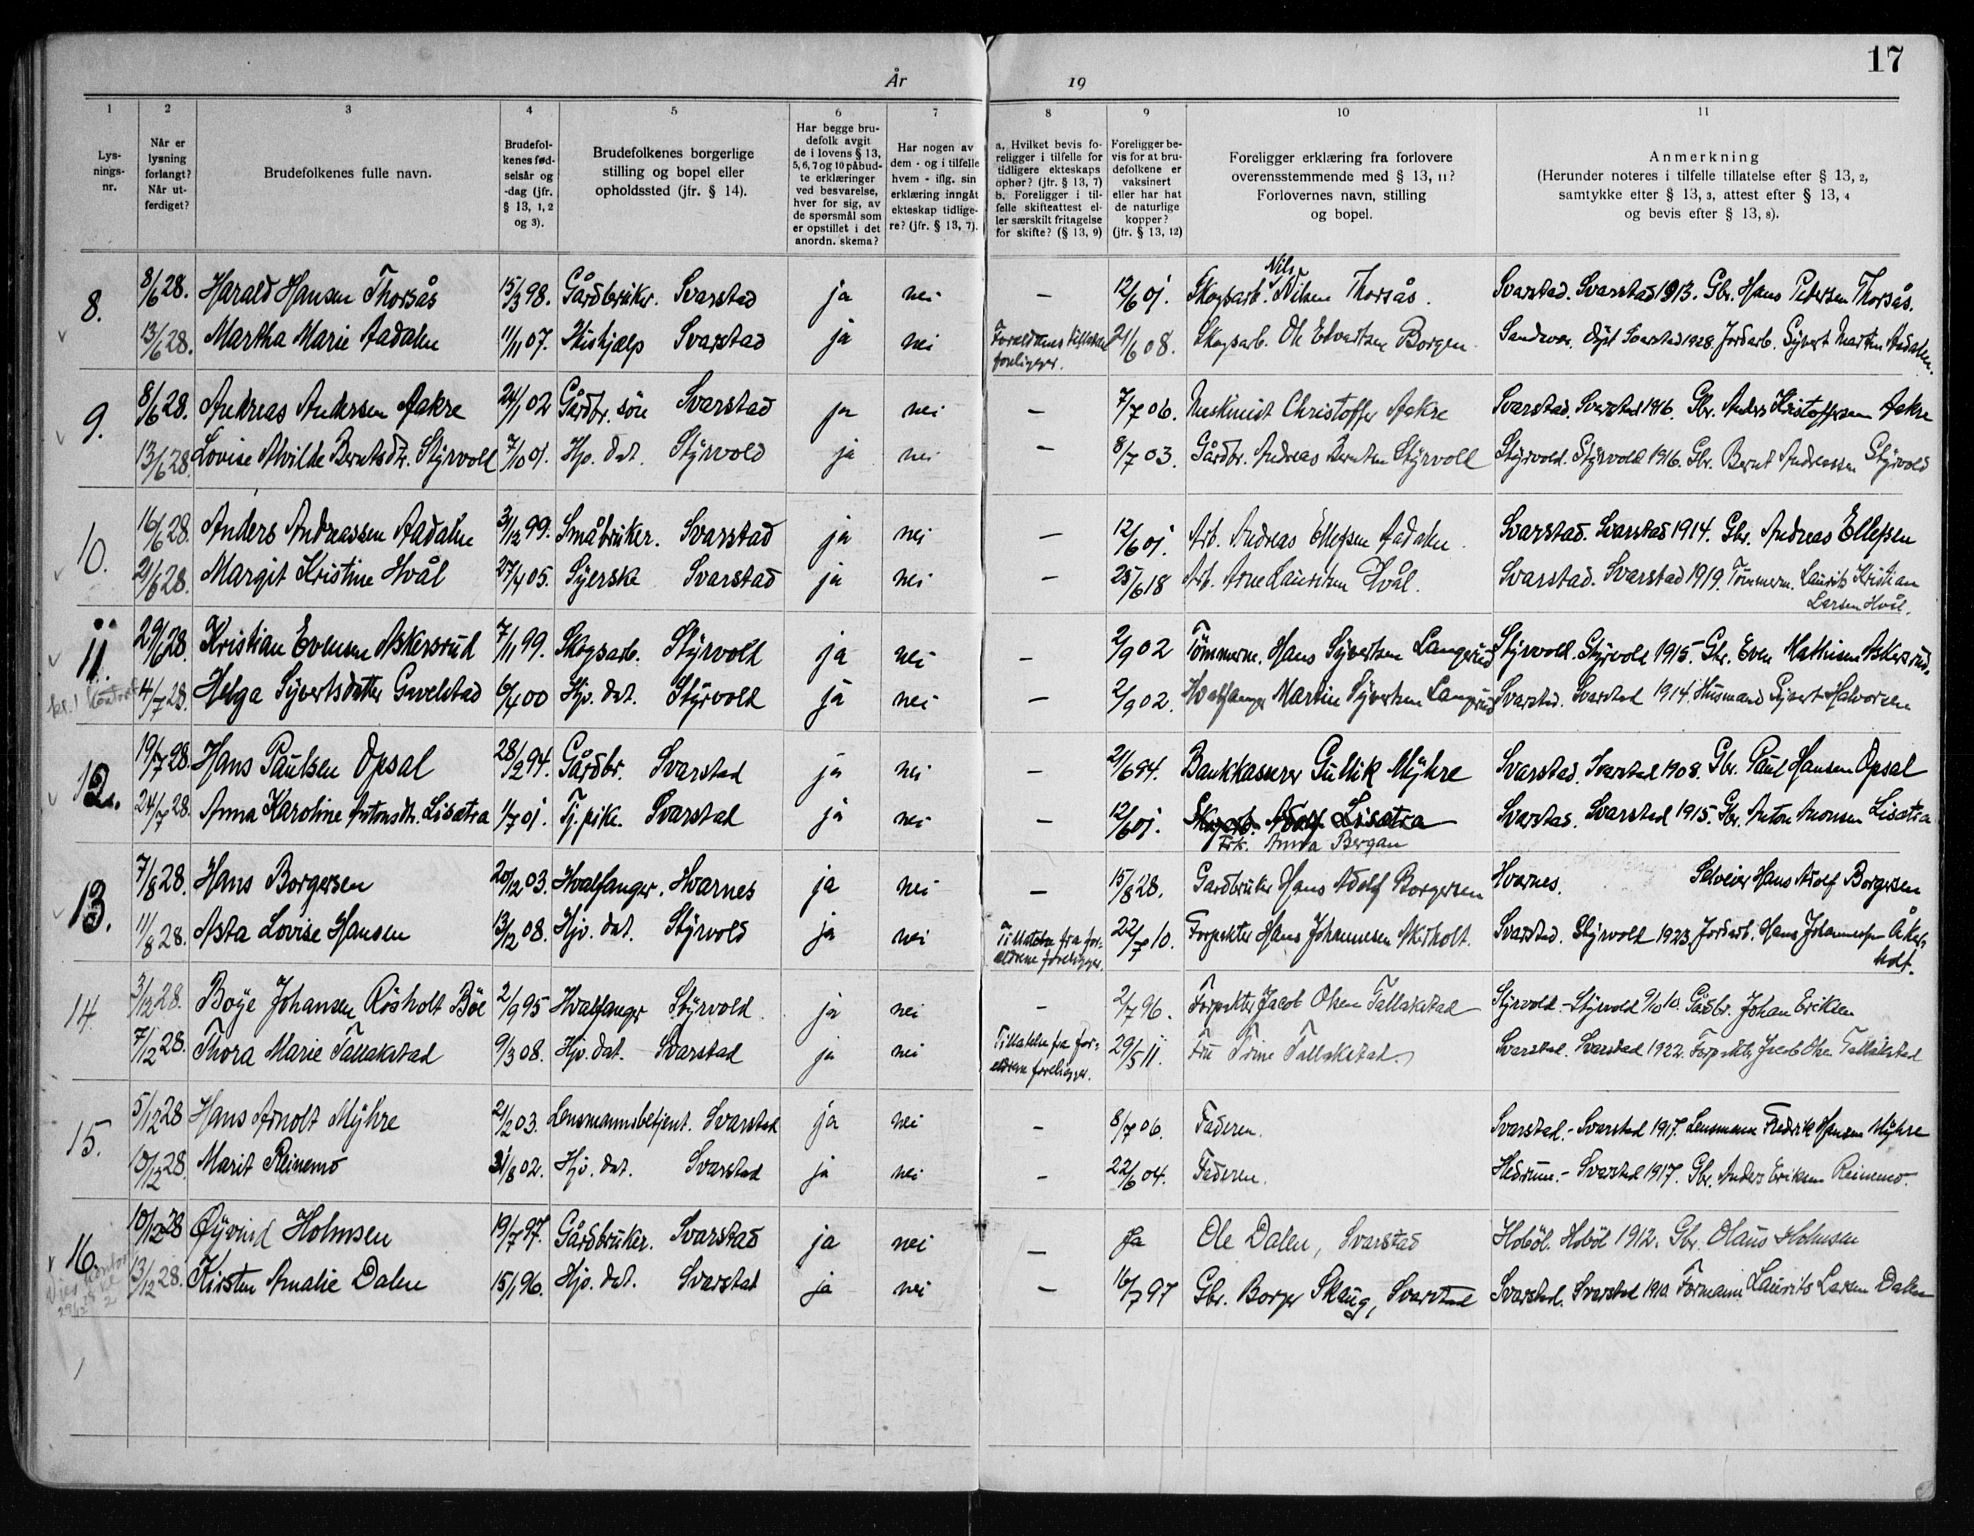 17
År 19
1 2 3 4 5 6 7 8 9 10 11
Lys-
nings-
nr.
Når er
lysning
forlangt?
Når ut-
ferdiget?
Brudefolkenes fulle navn.
Brudefol-
kenes fød-
selsår og
-dag (jfr.
§ 13, 1, 2
og 3).
Brudefolkenes borgerlige
stilling og bopel eller
opholdssted (jfr. § 14).
Har begge bru-
defolk avgit
de i lovens § 13,
5, 6, 7 og 10 påbud-
te erklæringer
ved besvarelse,
hver for sig, av
de spørsmål som
er opstillet i det
anordn. skema?
Har nogen av
dem - og i tilfelle
hvem - iflg. sin
erklæring inngåt
ekteskap tidlige-
re? (jfr. § 13, 7).
a. Hvilket bevis fo-
religger i tilfelle for
tidligere ekteskaps
ophør? (jfr. § 13, 7)
b. Foreligger i til-
felle skifteattest el-
ler særskilt fritagelse
for skifte? (§ 13, 9)
Foreligger be-
vis for at bru-
defolkene er
vaksinert
eller har hat
de naturlige
kopper?
(jfr. § 13, 12)
Foreligger erklæring fra forlovere
overensstemmende med § 13, 11?
Forlovernes navn, stilling
og bopel.
Anmerkning
(Herunder noteres i tilfelle tillatelse efter § 13, 2,
samtykke efter § 13, 3, attest efter § 13, 4
og bevis efter § 13, 8).
8. 8/6 28. Harald Hansen Thorsås 15/3 98. Gårdbruker. Svarstad ja nei — 12/6 01. Skogsarb. Nils Nilsen Thorsås. Svarstad. Svarstad 1913. Gbr. Hans Pedersen Thorsås.
13/6 28. Martha Marie Aadalen 11/11 07. Hushjælp Svarstad ja nei Foreldrenes tillatelse foreligger. 21/6 08. Skogsarb. Ole Edvartsen Borgen. Sandsvær. Svarstad 1928. Jordarb. Syvert Martin Aadalen.
9. 8/6 28. Andreas Andersen Aakre 24/1 02 Gårdbr. søn Svarstad ja nei — 7/7 06. Christoffer Aakre Svarstad. Svarstad 1916. Gbr. Anders Kristoffersen Aakre
13/6 28. Lovise Alvilde Berntsdtr. Styrvold 7/10 01. Hjv. dat. Styrvold ja nei — 8/7 03. Gårdbr. Andreas Berntsen Styrvold Styrvold. Styrvold 1916. Gbr. Bernt Andreassen Styrvold
10. 16/6 28. Anders Andreassen Aadalen 31/12 99. Småbruker. Svarstad ja nei — 12/6 01. Arb. Andreas Ellefsen Aadalen. Svarstad. Svarstad 1914. Gbr. Andreas Ellefsen
21/6 28. Margit Kristine Hvål 27/4 05. Syerske Svarstad ja nei — 25/6 18 Arb. Arne Lauritsen Hvål. Svarstad. Svarstad 1919. Tømmerm. Laurits Kristian
Larsen Hvål.
11. 29/6 28. Kristian Evensen Askersrud 7/11 99. Skogsarb. Styrvold ja nei — 2/9 02 Tømmerm. Hans Syvertsen Langerud Styrvold. Styrvold 1915. Gbr. Even Mathisen Askersrud.
14/7 28. Helga Syvertsdatter Gavelstad 6/4 00 Hjv. dat. Styrvold ja nei — 2/9 02. Hvalfanger Martin Syvertsen Langerud Svarstad. Svarstad 1914. Husmand Syvert Halvorsen
12. 19/7 28. Hans Paulsen Opsal 28/2 94. Gårdbr. Svarstad ja nei — 21/6 94. Bankkasserer Gullik Myhre Svarstad. Svarstad 1908. Gbr. Paul Hansen Opsal
24/7 28. Anna Karoline Antonsdtr. Lisætra 11/7 01. Tj. pike. Svarstad ja nei — 12/6 01. Skogsarb. Adolf Lisætra Svarstad. Svarstad 1915. Gbr. Anton Aronsen Lisætra
Frk. Anna Bergan
13. 7/8 28. Hans Borgersen 20/12 03. Hvalfanger. Hvarnes ja nei — 15/8 28. Gardbruker Hans Adolf Borgersen Hvarnes. Selveier Hans Adolf Borgersen
11/8 28. Asta Lovise Hansen 13/12 08. Hjv. dat. Styrvold ja nei Tillatelse fra for-
ældrene foreligger. 22/7 10. Forpakter Hans Johannesen Akerholt. Svarstad. Styrvold 1923. Jordarb. Hans Johannesen Åker-
holt.
14 3/12 28. Boye Johansen Røsholt Bøe 2/9 95 Hvalfanger Styrvold. ja nei — 2/7 96. Forpakter Jacob Olsen Tallakstad Styrvold – Styrvold 9/10 10. Gådbr. Johan Eriksen
7/12 28. Thora Marie Tallakstad 9/3 08. Hjv. dat. Svarstad ja nei Tillatelse fra for-
eldrene foreligger. 29/5 11. Fru Trine Tallakstad. Svarstad. Svarstad 1922. Forpakter Jacob Olsen Tallakstad
15. 5/12 28 Hans Arnolt Myhre 21/2 03. Lensmannsbetjent. Svarstad ja nei — 8/7 06. Faderen. Svarstad. – Svarstad 1917. Lensmann Fredrik Hansen Myhre
10/12 28. Marit Reinemo 31/8 02. Hjv. dat. Svarstad ja nei — 22/6 04. Faderen. Hedrum. – Svarstad 1917. Gbr. Anders Eriksen Reinemo.
16. 10/12 28 Øyvind Holmsen 19/7 97. Gårdbruker. Svarstad ja nei — Ja Ole Dalen, Svarstad Hobøl. Hobøl 1912. Gbr. Olaus Holmsen
13/12 28. Kirsten Amalie Dalen 15/1 96. Hjv. dat. Svarstad ja nei — 16/7 97 Gbr. Borger Skaug, Svarstad Svarstad. Svarstad 1910. Formann Laurits Larsen Dalen